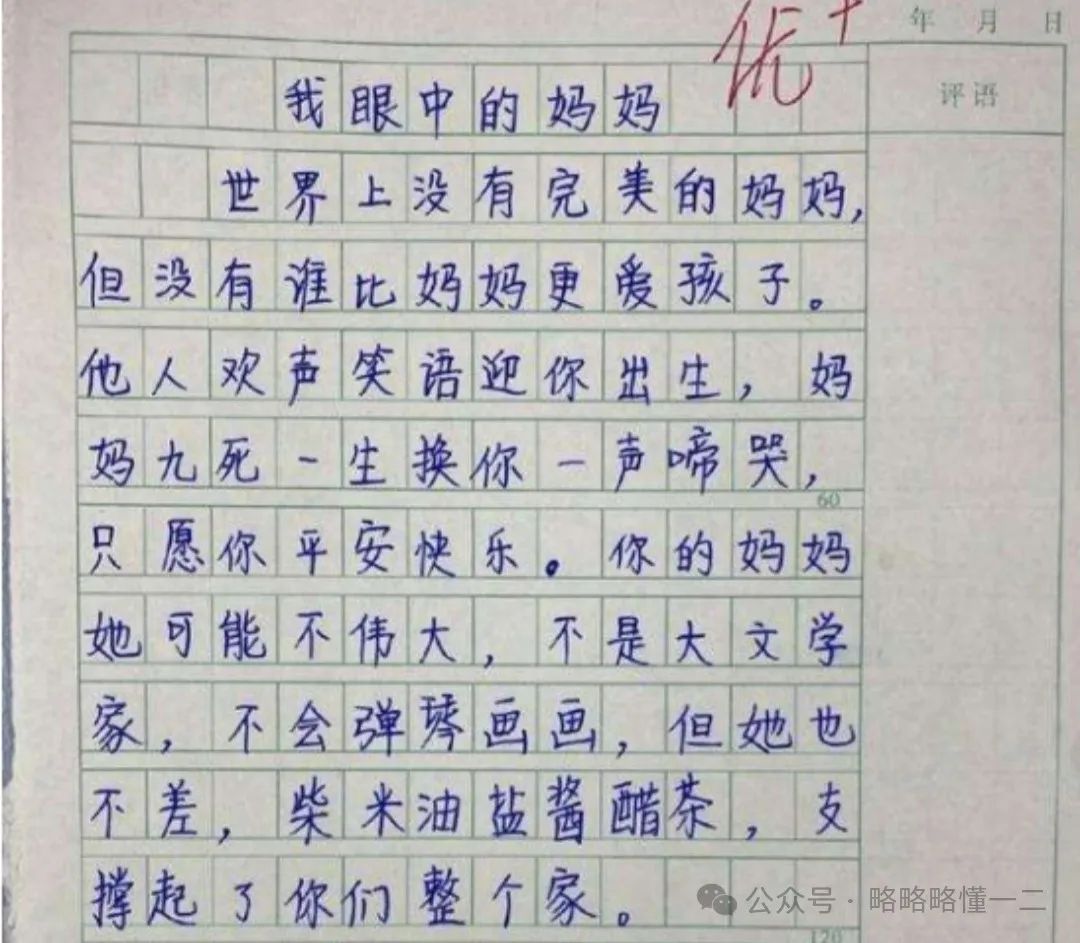 优+
年 月 日
评语
我眼中的妈妈
世界上没有完美的妈妈,
但没有谁比妈妈更爱孩子。
他人欢声笑语迎你出生,妈
妈九死一生换你一声啼哭,
60
只愿你平安快乐。你的妈妈
她可能不伟大,不是大文学
家,不会弹琴画画,但她也
不差,柴米油盐酱醋茶,支
撑起了你们整个家。
120
公众号·略略略懂一二